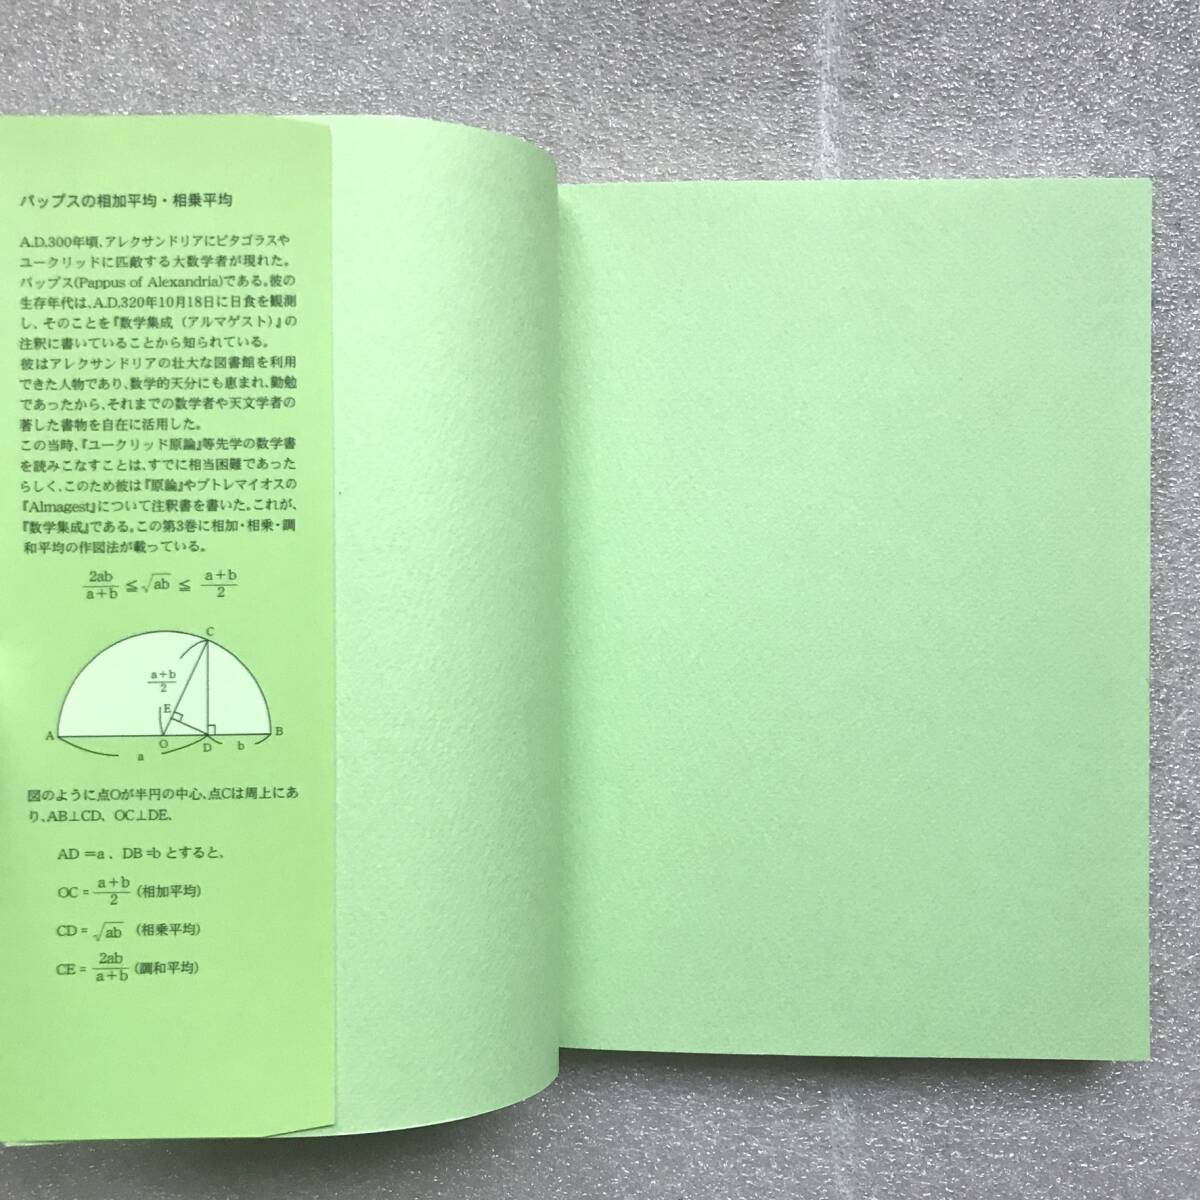 パップスの相加平均・相乗平均
A.D.300年頃、アレクサンドリアにピタゴラスや
ユークリッドに匹敵する大数学者が現れた。
パップス(Pappus of Alexandria)である。彼の
生存年代は、A.D.320年10月18日に日食を観測
し、そのことを『数学集成（アルマゲスト）』の
注釈に書いていることから知られている。
彼はアレクサンドリアの壮大な図書館を利用
できた人物であり、数学的天分にも恵まれ、勤勉
であったから、それまでの数学者や天文学者の
著した書物を自在に活用した。
この当時、『ユークリッド原論』等先学の数学書
を読みこなすことは、すでに相当困難であった
らしく、このため彼は『原論』やプトレマイオスの
『Almagest』について注釈書を書いた。これが、
『数学集成』である。この第3巻に相加・相乗・調
和平均の作図法が載っている。
2ab/a+b ≦ √ab ≦ a+b/2
C
a+b/2
E
A O D B
a b
図のように点Oが半円の中心、点Cは周上にあ
り、AB⊥CD、OC⊥DE、
AD=a、DB=bとすると、
OC = a+b/2 (相加平均)
CD = √ab (相乗平均)
CE = 2ab/a+b (調和平均)